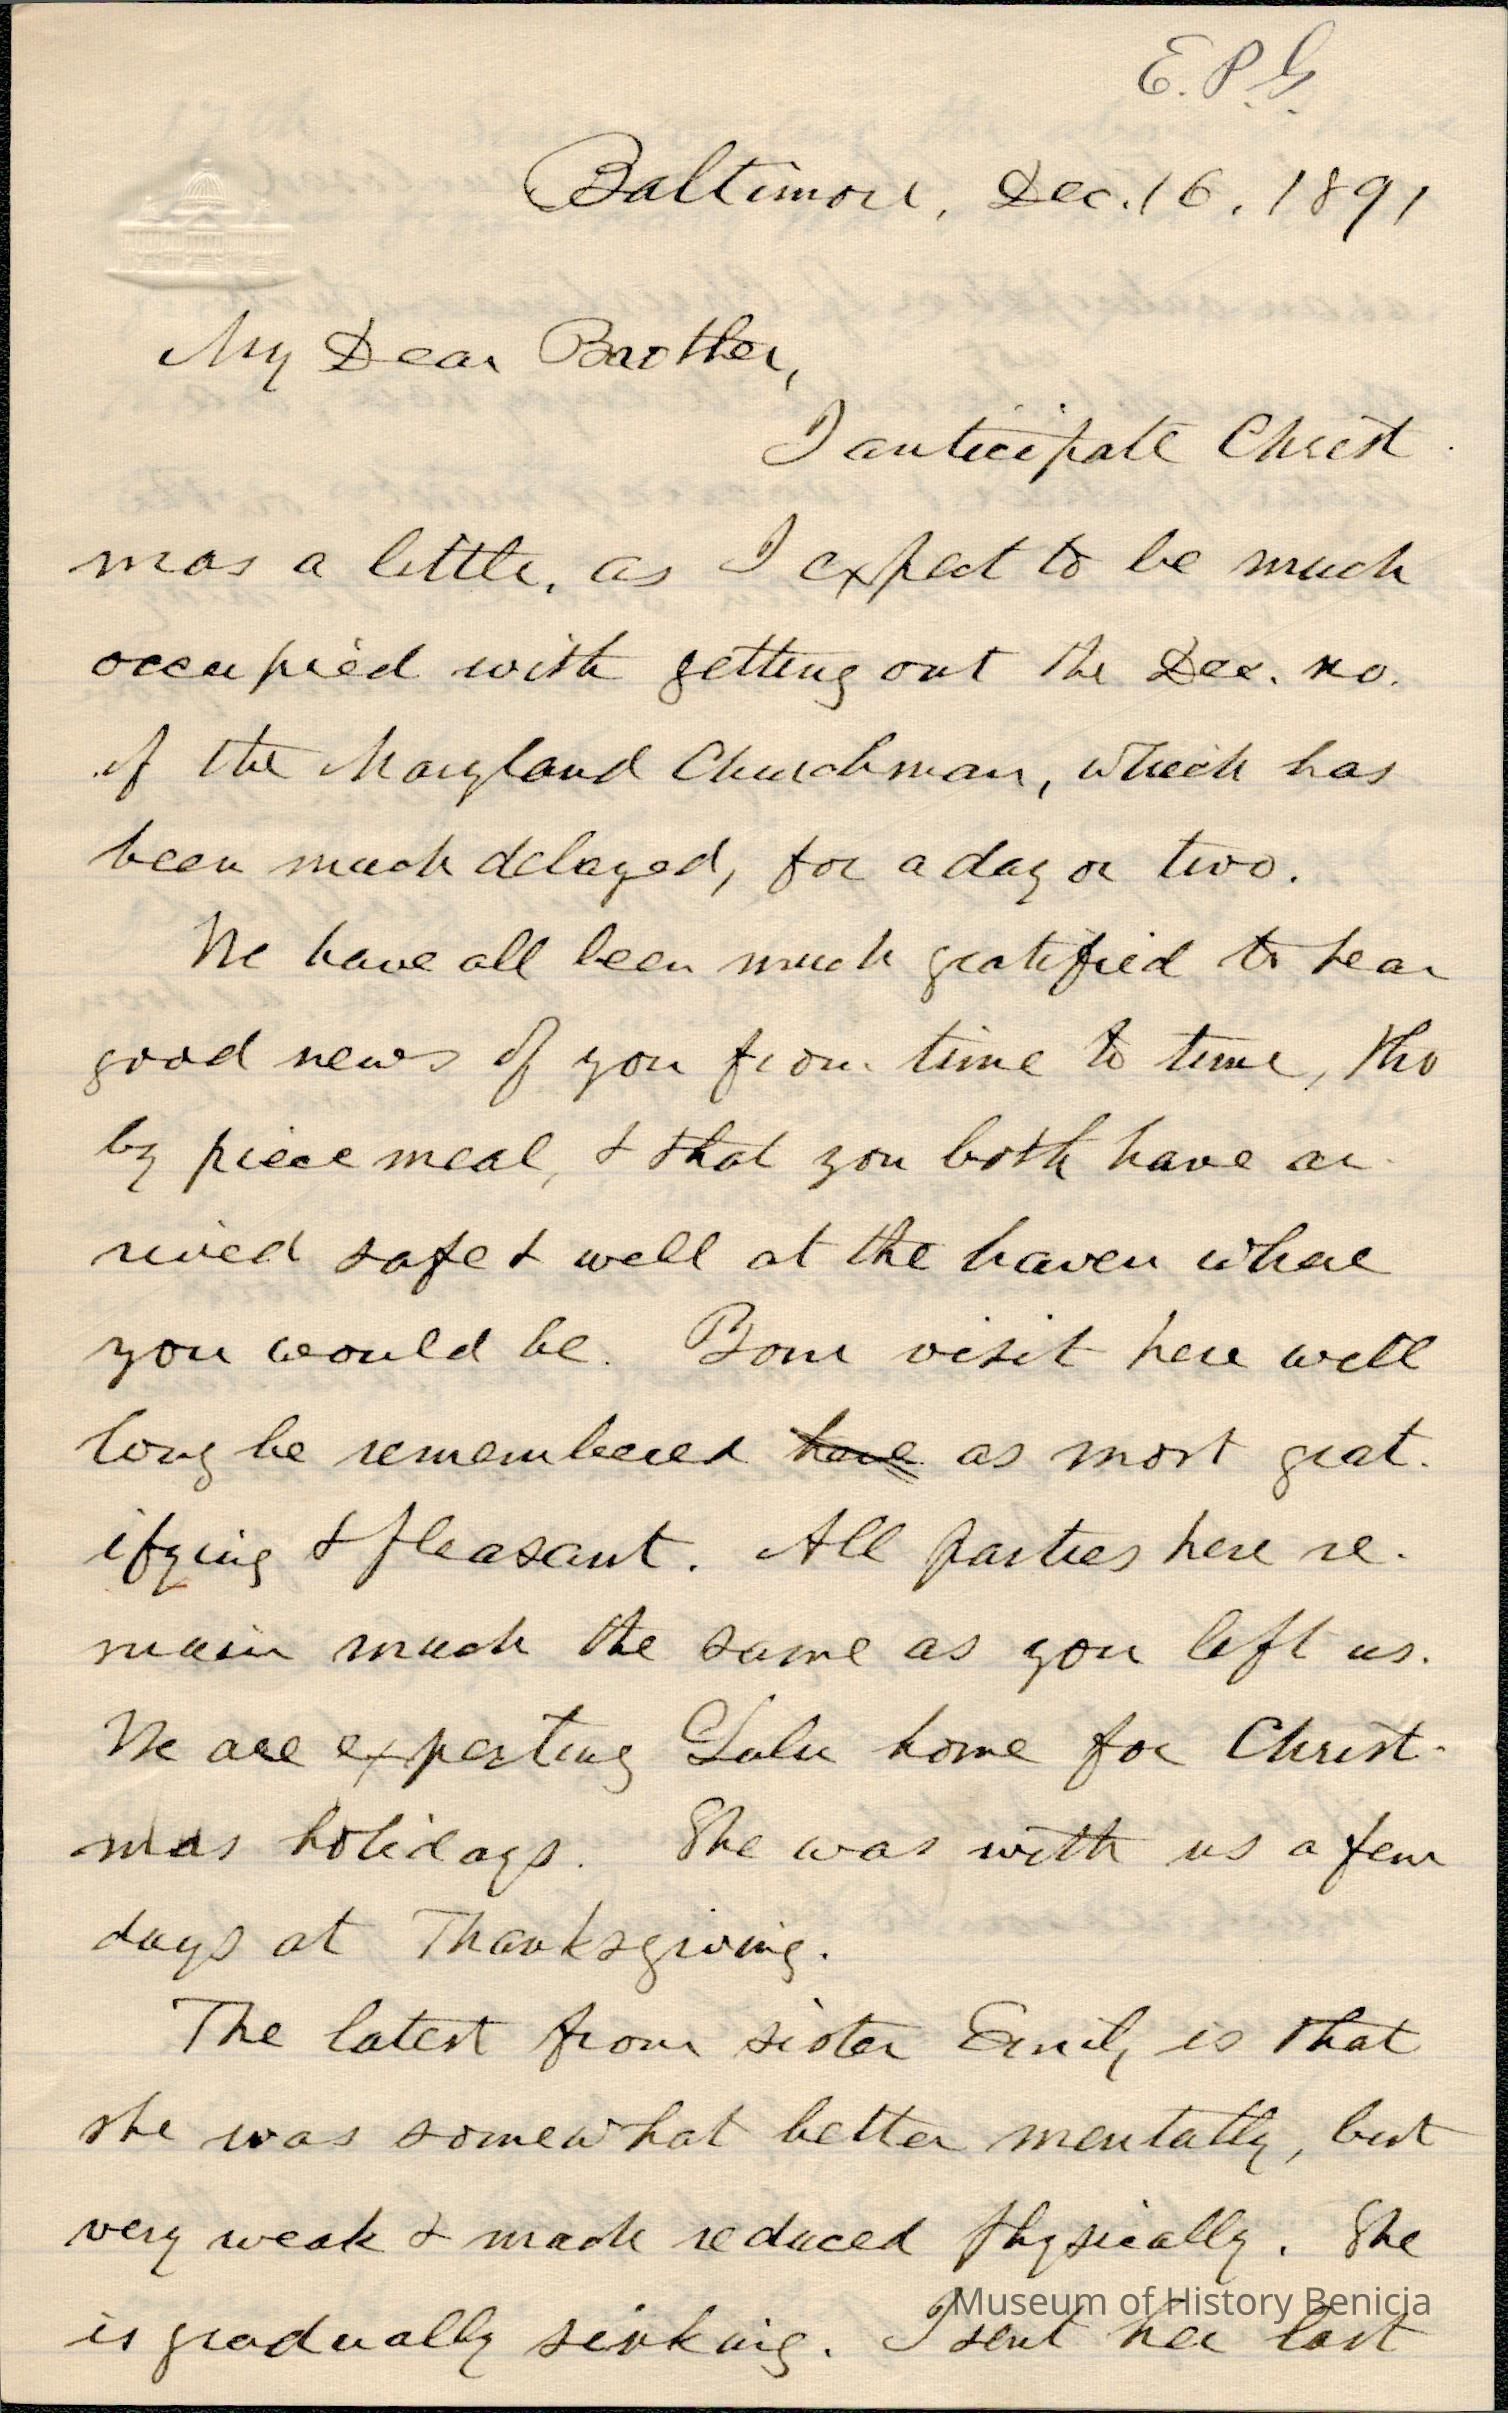 E.P.G.
Baltimore, Dec. 16, 1891
My Dear Brother,
I anticipate Christ-
mas a little, as I expect to be much
occupied with getting out the Dec. no.
of the Maryland Churchman, which has
been much delayed, for a day or two.
We have all been much gratified to hear
good news of you from time to time, tho
by piece meal, & that you both have ar-
rived safe & well at the haven where
you would be. Your visit here will
long be remembered have as most grat-
ifying & pleasant. All parties here re-
main much the same as you left us.
We are expecting Lulu home for Christ-
mas holidays. She was with us a few
days at Thanksgiving.
The latest from sister Emily is that
she was somewhat better mentally, but
very weak & much reduced physically. She
is gradually sinking. I sent her last
Museum of History Benicia